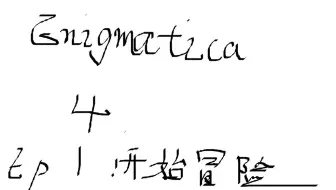 Enigmatica
4
Ep 1 开始冒险